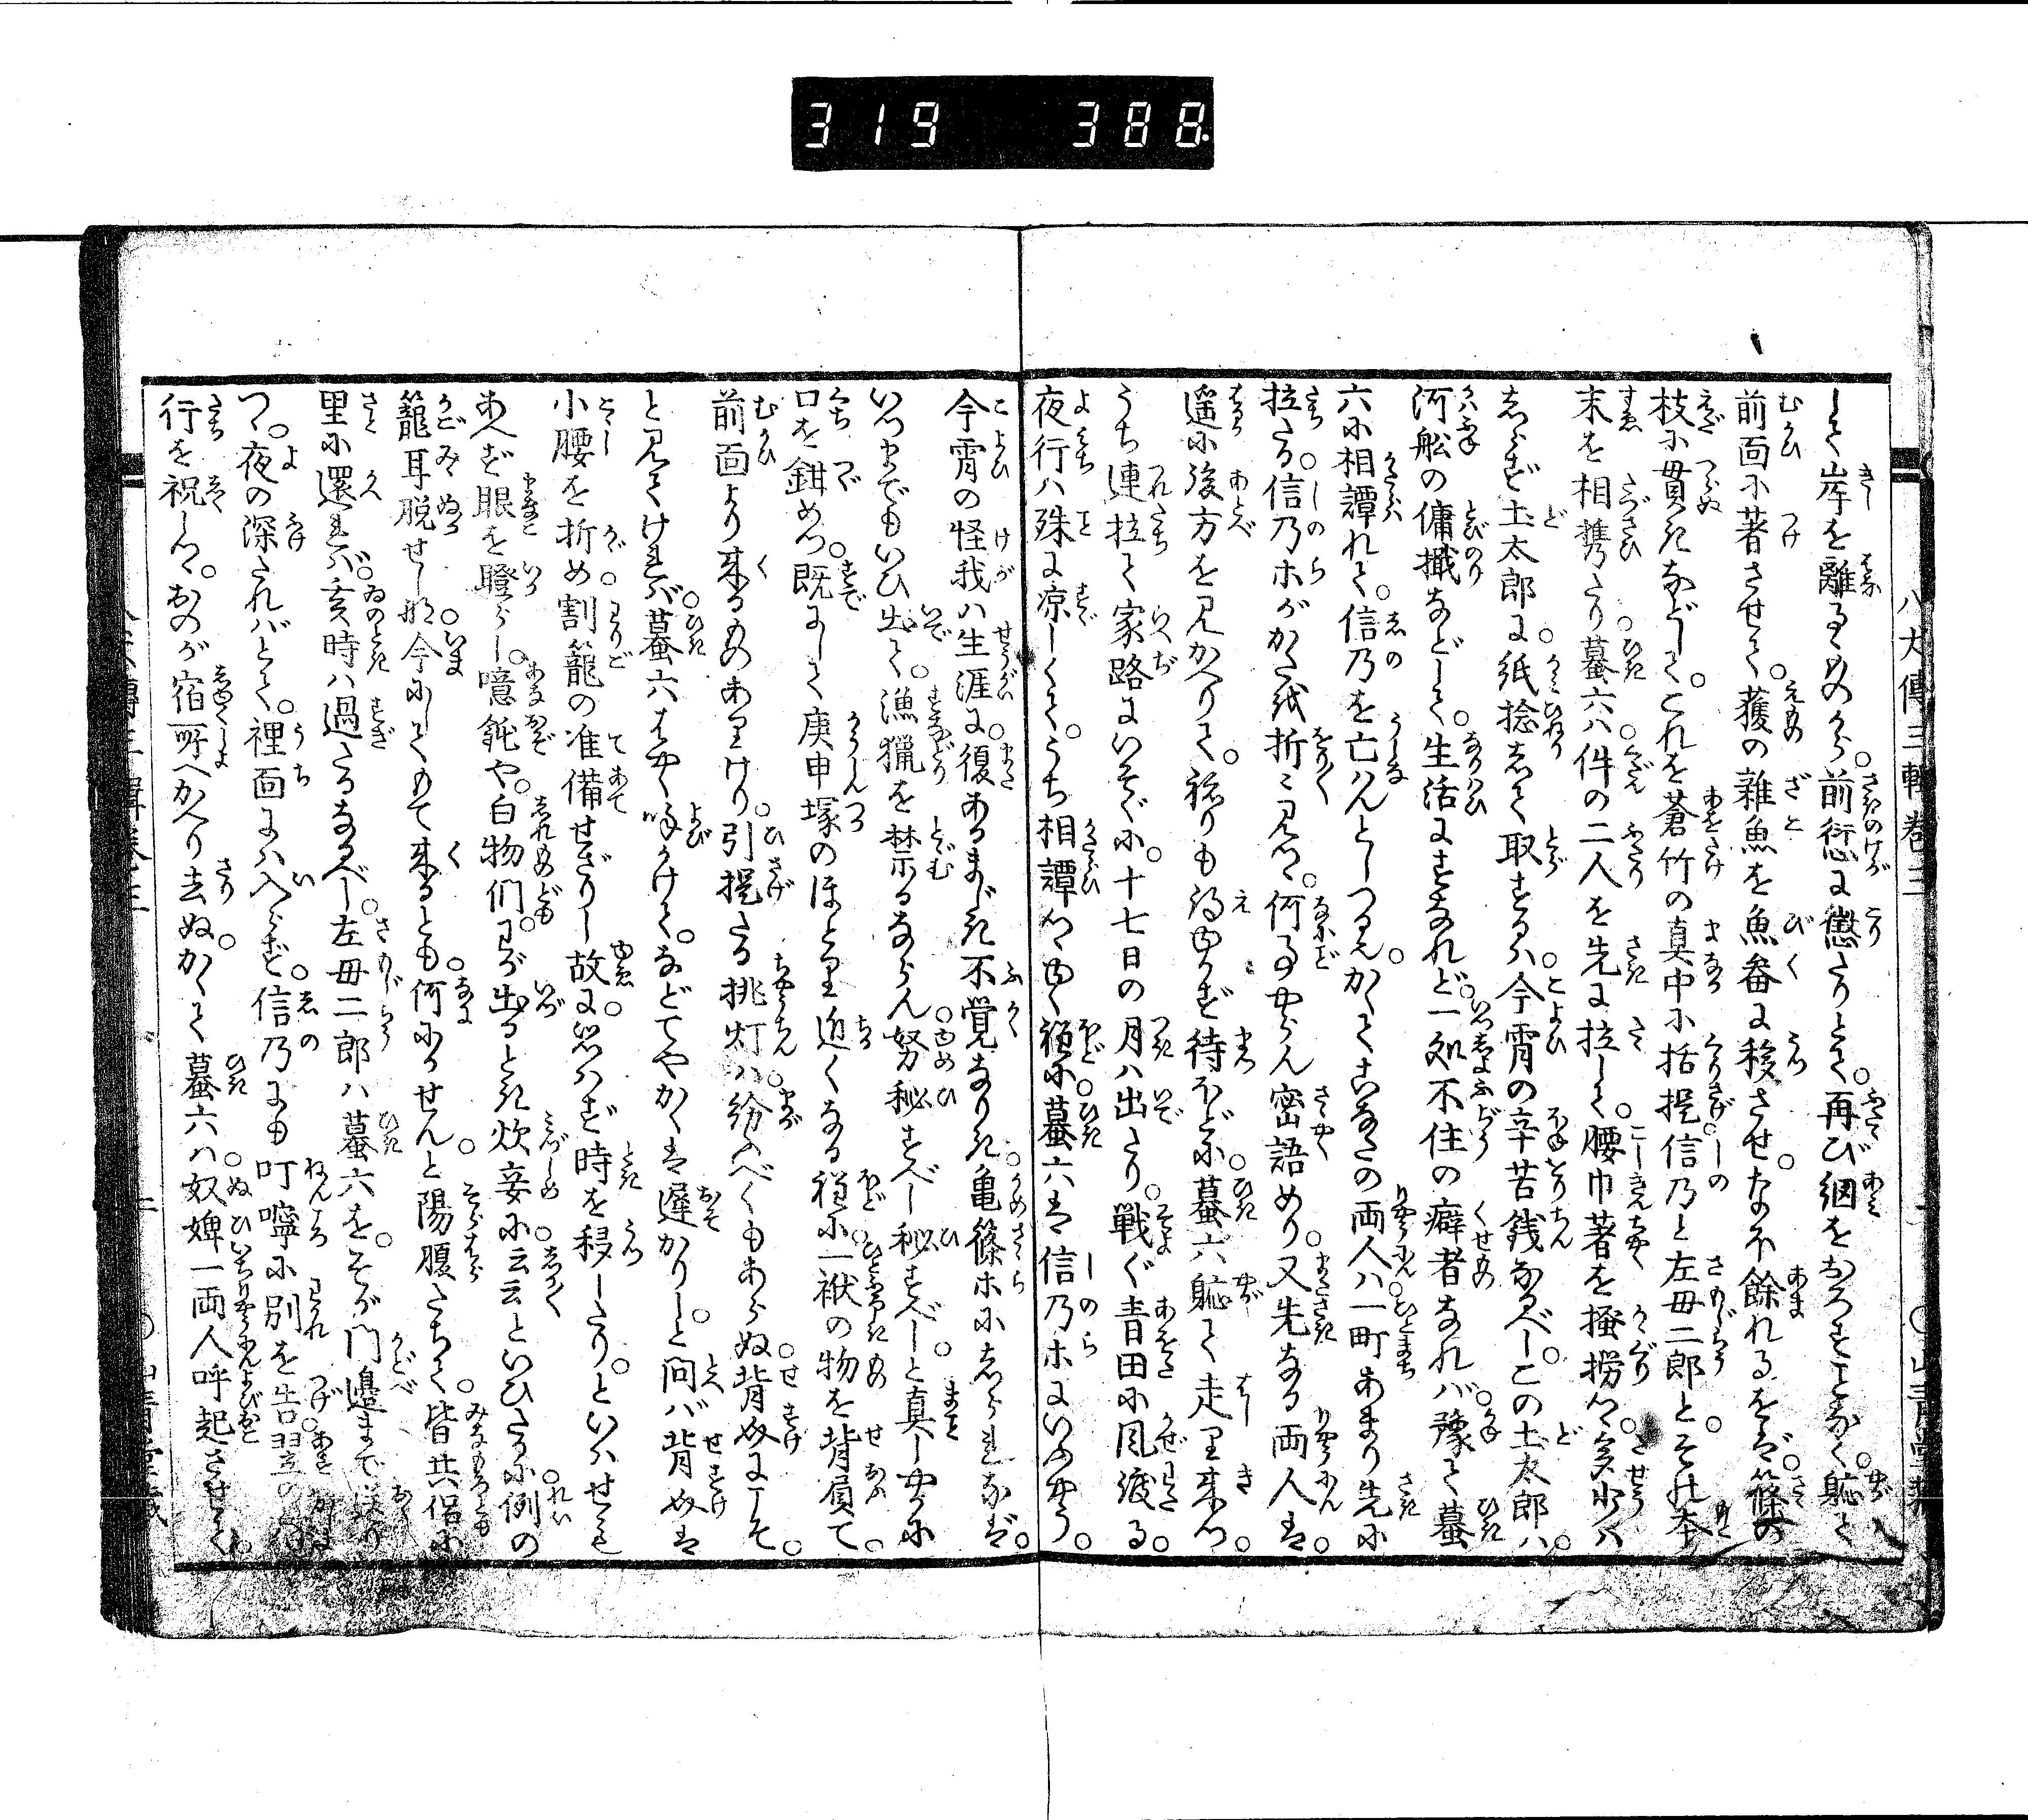 319 388
八犬傳三輯巻三
して岸を離るゝものから。前愆に懲たりとて。再び網をおろすことなく。軈て
前面に著させて。獲の雑魚を魚畚に移させ。なほ餘れるをば。篠の
枝に貫きなどして。これを蒼竹の真中に括提。信乃と左母二郎と。その本
末を相携たり。蟇六ハ。件の二人を先に拉して。腰巾著を掻撈つゝ。多少ハ
しらず土太郎に。紙捻して取するハ。今宵の辛苦銭なるべし。この土太郎ハ。
河舩の傭攕などして。生活にすなれど。一処不住の癖者なれバ。豫て蟇
六に相譚れて。信乃を亡はんとしつるなり。かくてこなたの両人ハ一町あまり先に
拉たる。信乃ホがかたを折々見つゝ。何事やらん密語めり。又先なる両人は。
遥に後方を見かへりて。禰りも得ゆかず待ほどに。蟇六軈て走り来つ。
うち連拉て家路にいそぐに。十七日の月ハ出たり。戦ぐ青田に風渡る。
夜行ハ殊に凉しくて。うち相譚つゝゆく程に。蟇六は信乃ホにいふやう。
今宵の怪我ハ生涯に。復あるまじき不覚なりき。亀篠ホにしられなば。
いつまでもいひ出て。漁猟を禁るならん。努秘すべし秘すべし。と真しやかに
口を鉗めつ。既にして庚申塚のほとり近くなる程に。一袱の物を背屓て。
前面より来るものありけり。引提たる挑灯ハ。紛ふべくもあらぬ背奴にこそ。
と見てければ。蟇六はやく呼かけて。などてやかくは遅かりし。と問バ背奴は
小腰を折め。割籠の准備せざりし故に。思ハず時を移したり。といはせもあへ
ず眼を瞪らし。噫鈍や。白物們。わが出るとき炊妾に。云云といひたるに。例の
籠耳脱せし歟。今にしてもて来るとも。何にかせんと陽腹たちて。皆共侶に
里に還れバ。亥時ハ過たるなるべし。左母二郎ハ蟇六を。そが門邉まで送り
つ。夜の深たれバとて。裡面にハ入らず。信乃にも叮嚀に別を告。翌の
行を祝しつゝ。おのが宿所へかへり去ぬ。かくて蟇六ハ奴婢一両人呼起させて。